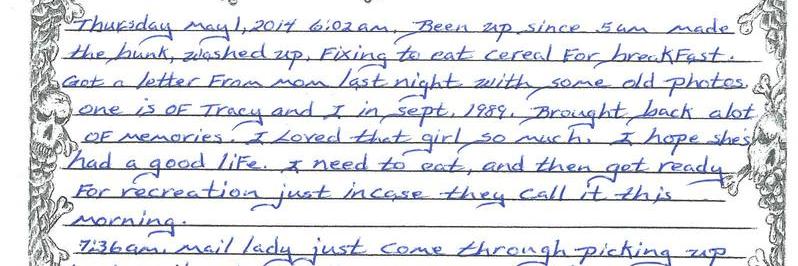 Thursday May 1, 2014 6:02am. Been up since 5am made
the bunk, washed up. Fixing to eat cereal For breakFast.
Got a letter From mom last night with some old photos.
one is OF Tracy and I in sept. 1989. Brought back alot
OF memories. I Loved that girl so much. I hope she's
had a good liFe. I need to eat, and then get ready
For recreation just incase they call it this
morning.
7:36am. Mail lady just come through picking up